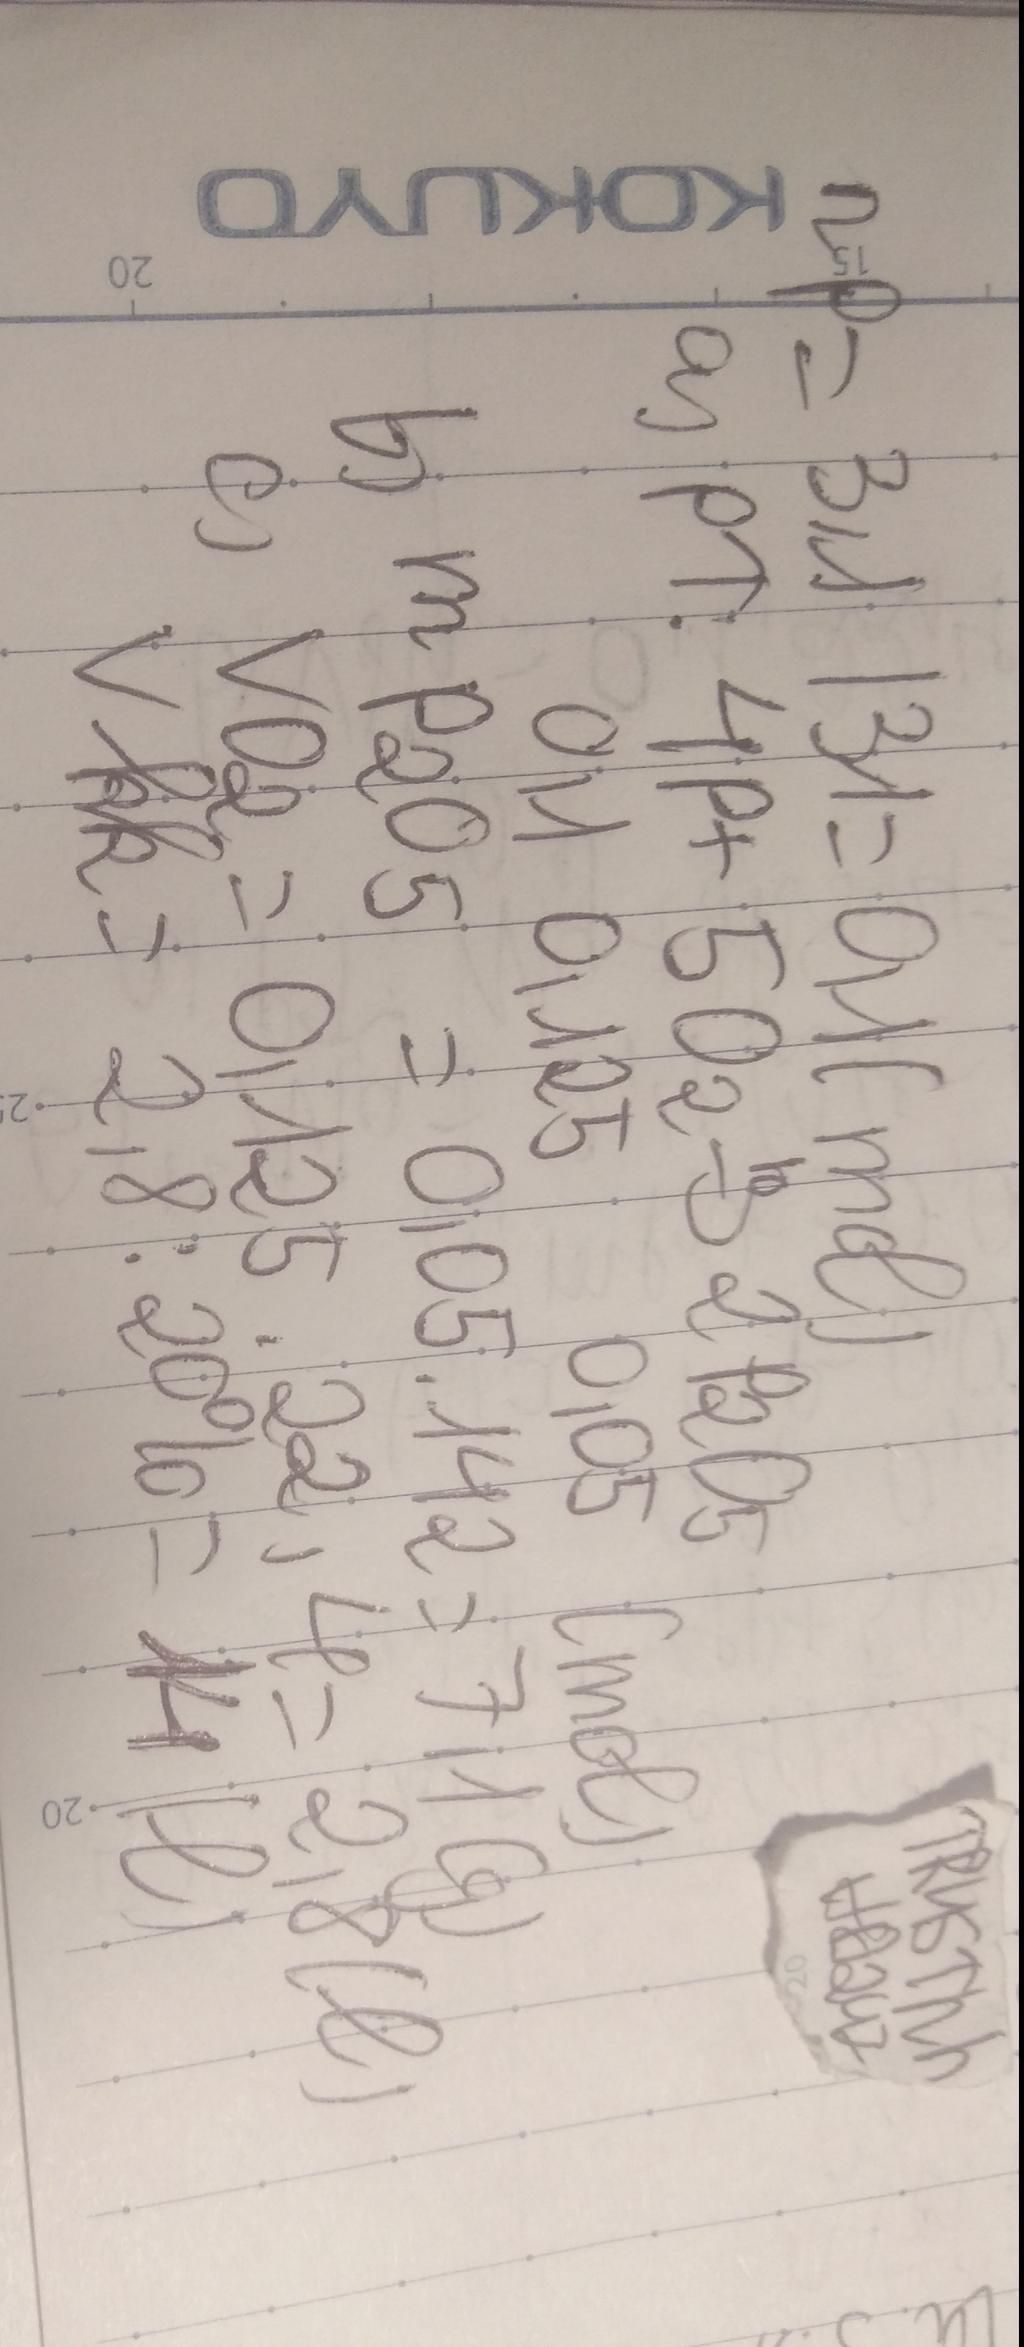 KOKUYO
15
20
nP = 3,1 | 31 = 0,1 ( mol )
a) PT: 4P + 5O2 -to-> 2P2O5
0,1 0,125 0,05 (mol)
b) mP2O5 = 0,05 . 142 = 7,1 (g)
c) VO2 = 0,125 . 22,4 = 2,8 (l)
Vkk = 2,8 : 20% = 14 (l)
25
20
TRUSTHY
20